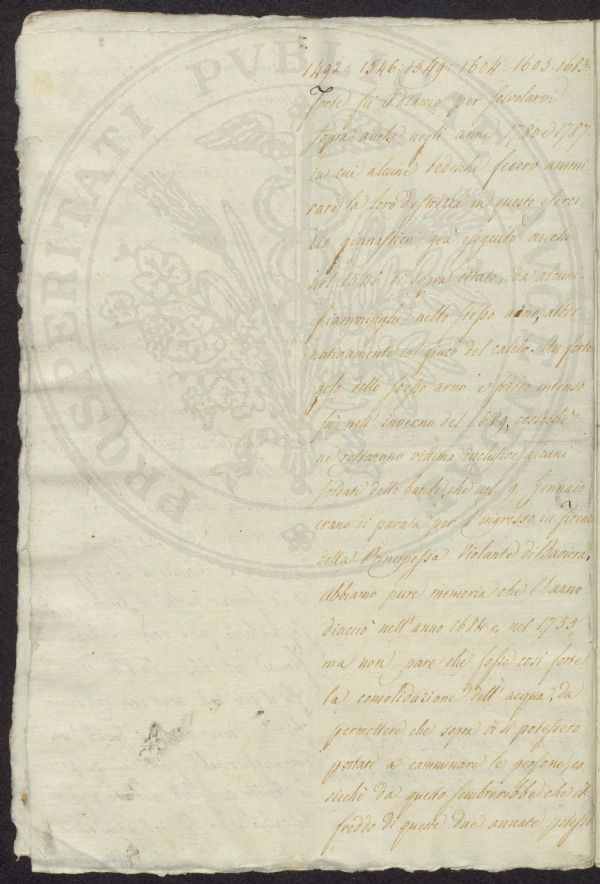 1492 = 1546 = 1549 = 1604 = 1605 = 1683.
forte fù il diaccio per scivolarvi
sopra anche negli anni 1780 e 1787
in cui alcuni tedeschi fecero ammi
rare la loro destrezza in questo eserci
zio ginnastico, già eseguito anche
nel 1546 di sopra citato, da alcuni
fiamminghi nello stesso arno, alter
nativamente col giuco del calcio. Un forte
gelo dello stesso arno e freddo intenso
fù nell'inverno del 1689, cosichè
ne restarono vittima inclusive alcuni
soldati delle bande, che nel 9 Gennaio
erano di parata per l'ingresso in Firenze
della Principessa Violante di Baviera.
Abbiamo pure memoria che l'arno
diacciò nell'anno 1684 e nel 1755
ma non pare che fosse così forte
la consolidazione dell'acqua, da
permettere che sopra vi si potessero
portare a camminare le persone, co
sicchè da questo sembrerebbe che il
freddo di queste due annate fosse
PROSPERITATI PUBLICAE AUGENDAE